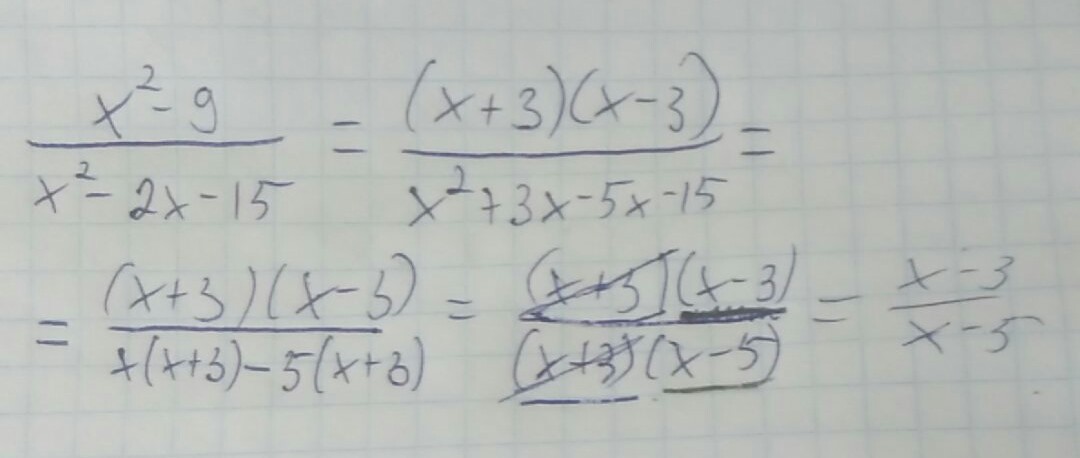 x²-9/x²-2x-15 = (x+3)(x-3)/x²+3x-5x-15 =
= (x+3)(x-3)/x(x+3)-5(x+3) = (x+3)(x-3)/(x+3)(x-5) = x-3/x-5